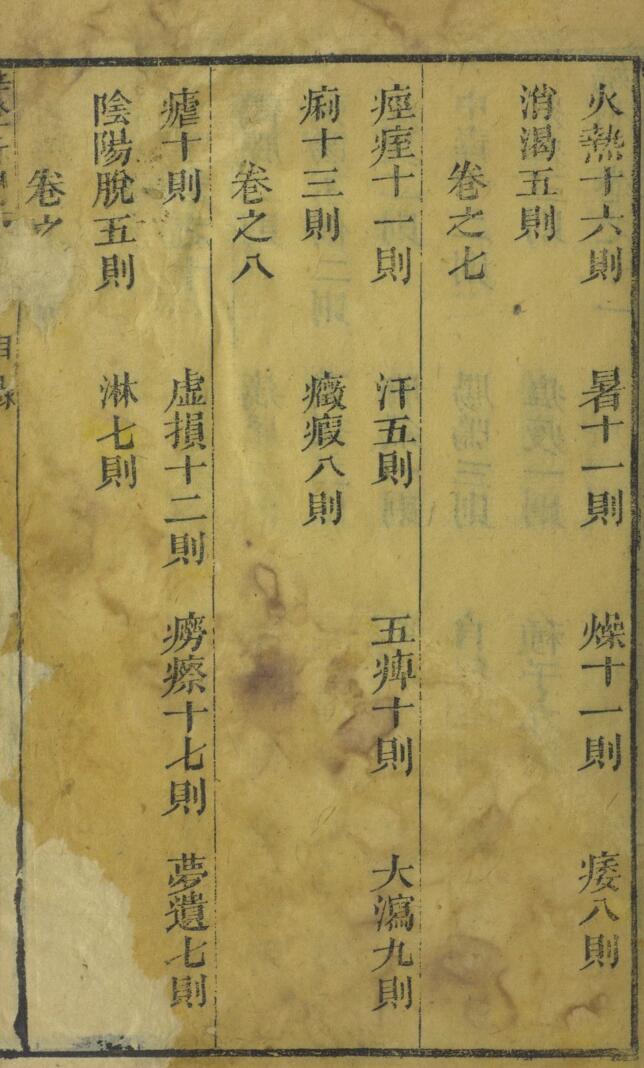 火熱十六則 暑十一則 燥十一則 痿八則
消渴五則
卷之七
痙痓十一則 汗五則 五痺十則 大瀉九則
痢十三則 癥瘕八則
卷之八
瘧十則 虛損十二則 癆瘵十七則 夢遺七則
陰陽脫五則 淋七則
卷之
目錄